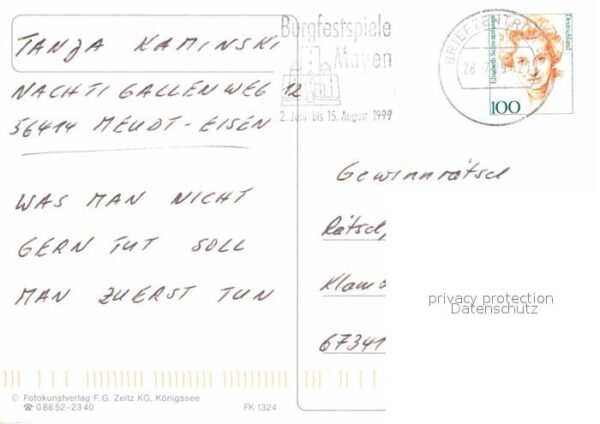 TANJA KAMINSKI
NACHTIGALLENWEG 12
56414 MEUDT-EISEN
WAS MAN NICHT
GERN TUT SOLL
MAN ZUERST TUN
© Fotokunstverlag F. G. Zeitz KG, Königssee
☎ 08652-2340
FK 1324
Burgfestspiele
Mayen
2. Juni bis 15. August 1999
BRIEFZENTRUM
Elisabeth Schwarzhaupt
Deutschland
100
Gewinnrätsel
Rätsel,
67341
privacy protection
Datenschutz